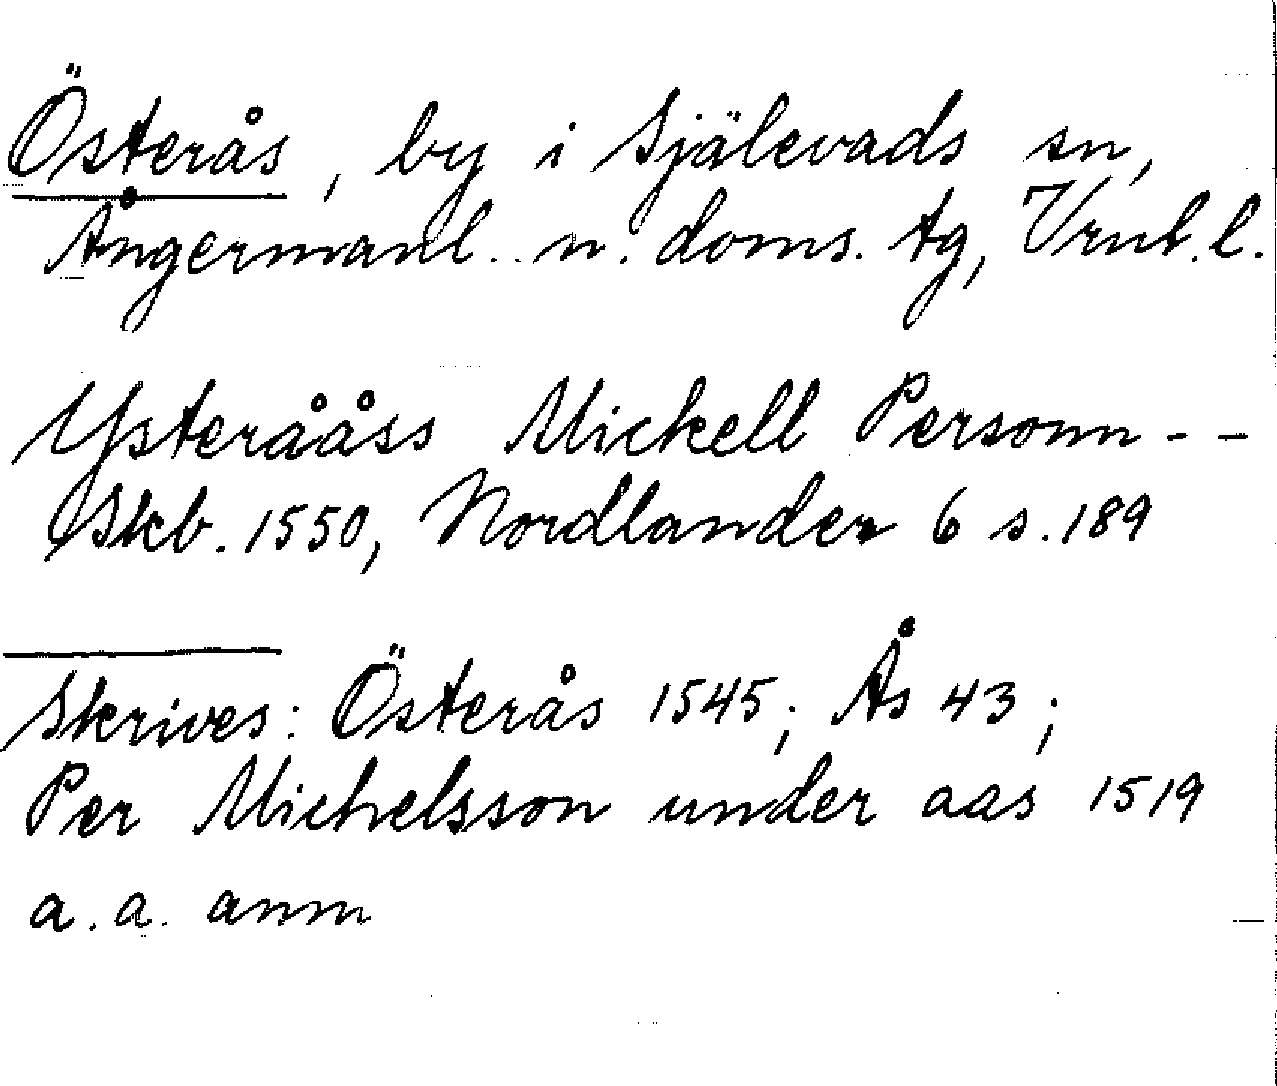 Österås, by i Själevads sn,
Ångermanl. n. doms. tg, Vrnl. l.
Ysterååss Mickell Personn - -
Skb. 1550, Nordlander 6 s. 189
Skrives: Österås 1545; Ås 43;
Per Michelsson under aas 1519
a. a. anm